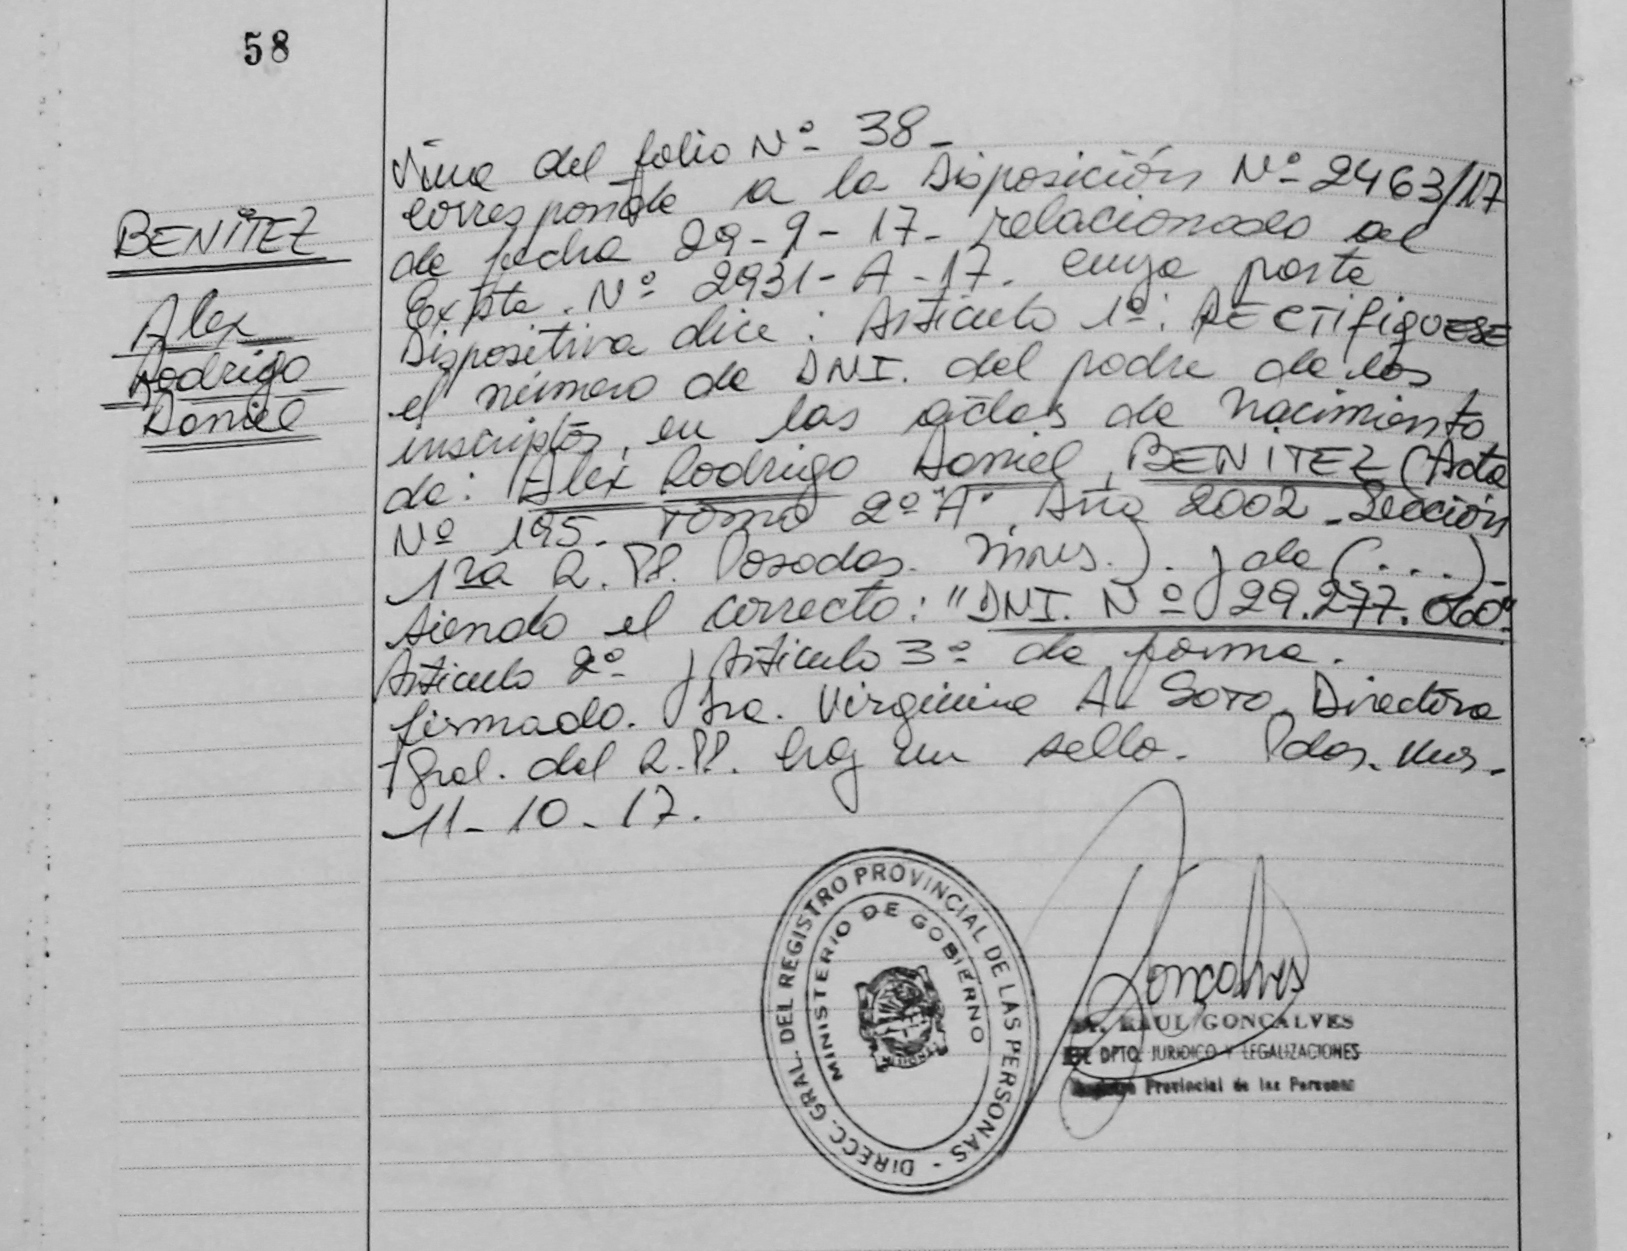 58
BENITEZ
Alex
Rodrigo
Daniel
Viene del folio Nº 38-
corresponde a la Disposición Nº 2463/17
de fecha 29-9-17- relacionado al
Expte. Nº 2931-A-17. cuya parte
Dispositiva dice: Artículo 1º: RECTIFIQUESE
el número de DNI. del padre de los
inscriptos, en las actas de nacimiento
de: Alex Rodrigo Daniel BENITEZ (Acta
Nº 195. Tomo 2º "A". Año 2002 - Sección
1ra R.PP. Posadas. Mnes.). y de (...).
siendo el correcto: "DNI. Nº 29.277.060"
Artículo 2º y Artículo 3º de forma.
firmado. Dra. Virginia A. Soto Directora
Gral. del R.PP. hay un sello. Pdas. Mns.
11-10-17.
DIRECC. GRAL. DEL REGISTRO PROVINCIAL DE LAS PERSONAS -
MINISTERIO DE GOBIERNO
MISIONES
Goncalves
RAUL GONCALVES
DPTO. JURIDICO Y LEGALIZACIONES
Provincial de las Personas